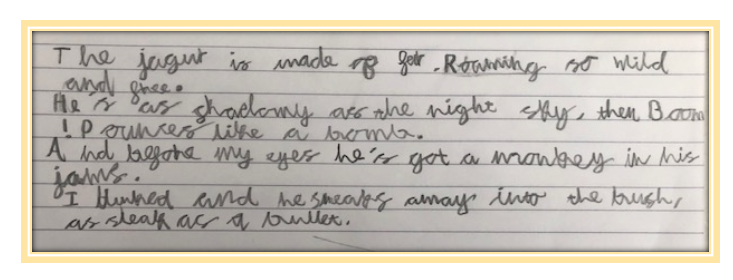 The jagur is made of fur. Roaming so wild
and free.
He is as shadowy as the night sky, then Boom
! Pounces like a bomb.
And before my eyes he's got a monkey in his
jaws.
I blinked and he sneaks away into the bush,
as sleak as a bullet.